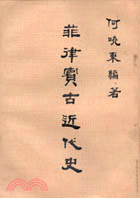 何曉東編著
菲律賓古近代史